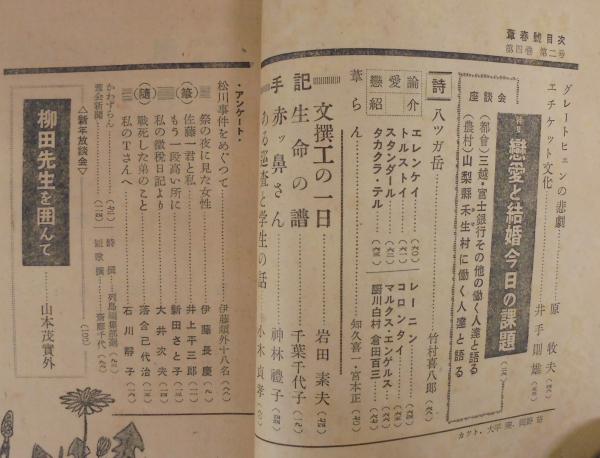 葦春號目次
第四巻 第二号
グレートヒェンの悲劇 原 牧夫
エチケット文化 井手則雄
特集 戀愛と結婚今日の課題
座談会
(都會) 三越・富士銀行その他の働く人達と語る
(農村) 山梨縣禾生村に働く人達と語る
詩 八ツガ岳 竹村喜八郎
戀愛論紹介
エレンケイ
トルストイ
スタンダール
タカクラ・テル
レーニン
コロンタイ
マルクス・エンゲルス
厨川白村 倉田百三
葦らん 知久喜一・宮本正
文撰工の一日 岩田素夫
記 生命の譜 千葉千代子
手 赤ッ鼻さん 神林禮子
ある巡査と学生の話 小木貞孝
・アンケート・
松川事件をめぐつて 伊藤頌外十八名
隨筆
祭の夜に見た女性 伊藤長慶
佐藤一君と私 井上平三郎
もう一段高い所に 新田さと子
私の徴税日記より 大井次夫
戰死した弟のこと 落合己代治
私のTさんへ 石川靜子
詩撰 列島編集部選
短歌撰 齋藤千代
△新年放談会▽
柳田先生を囲んで 山本茂實外
カット・大平